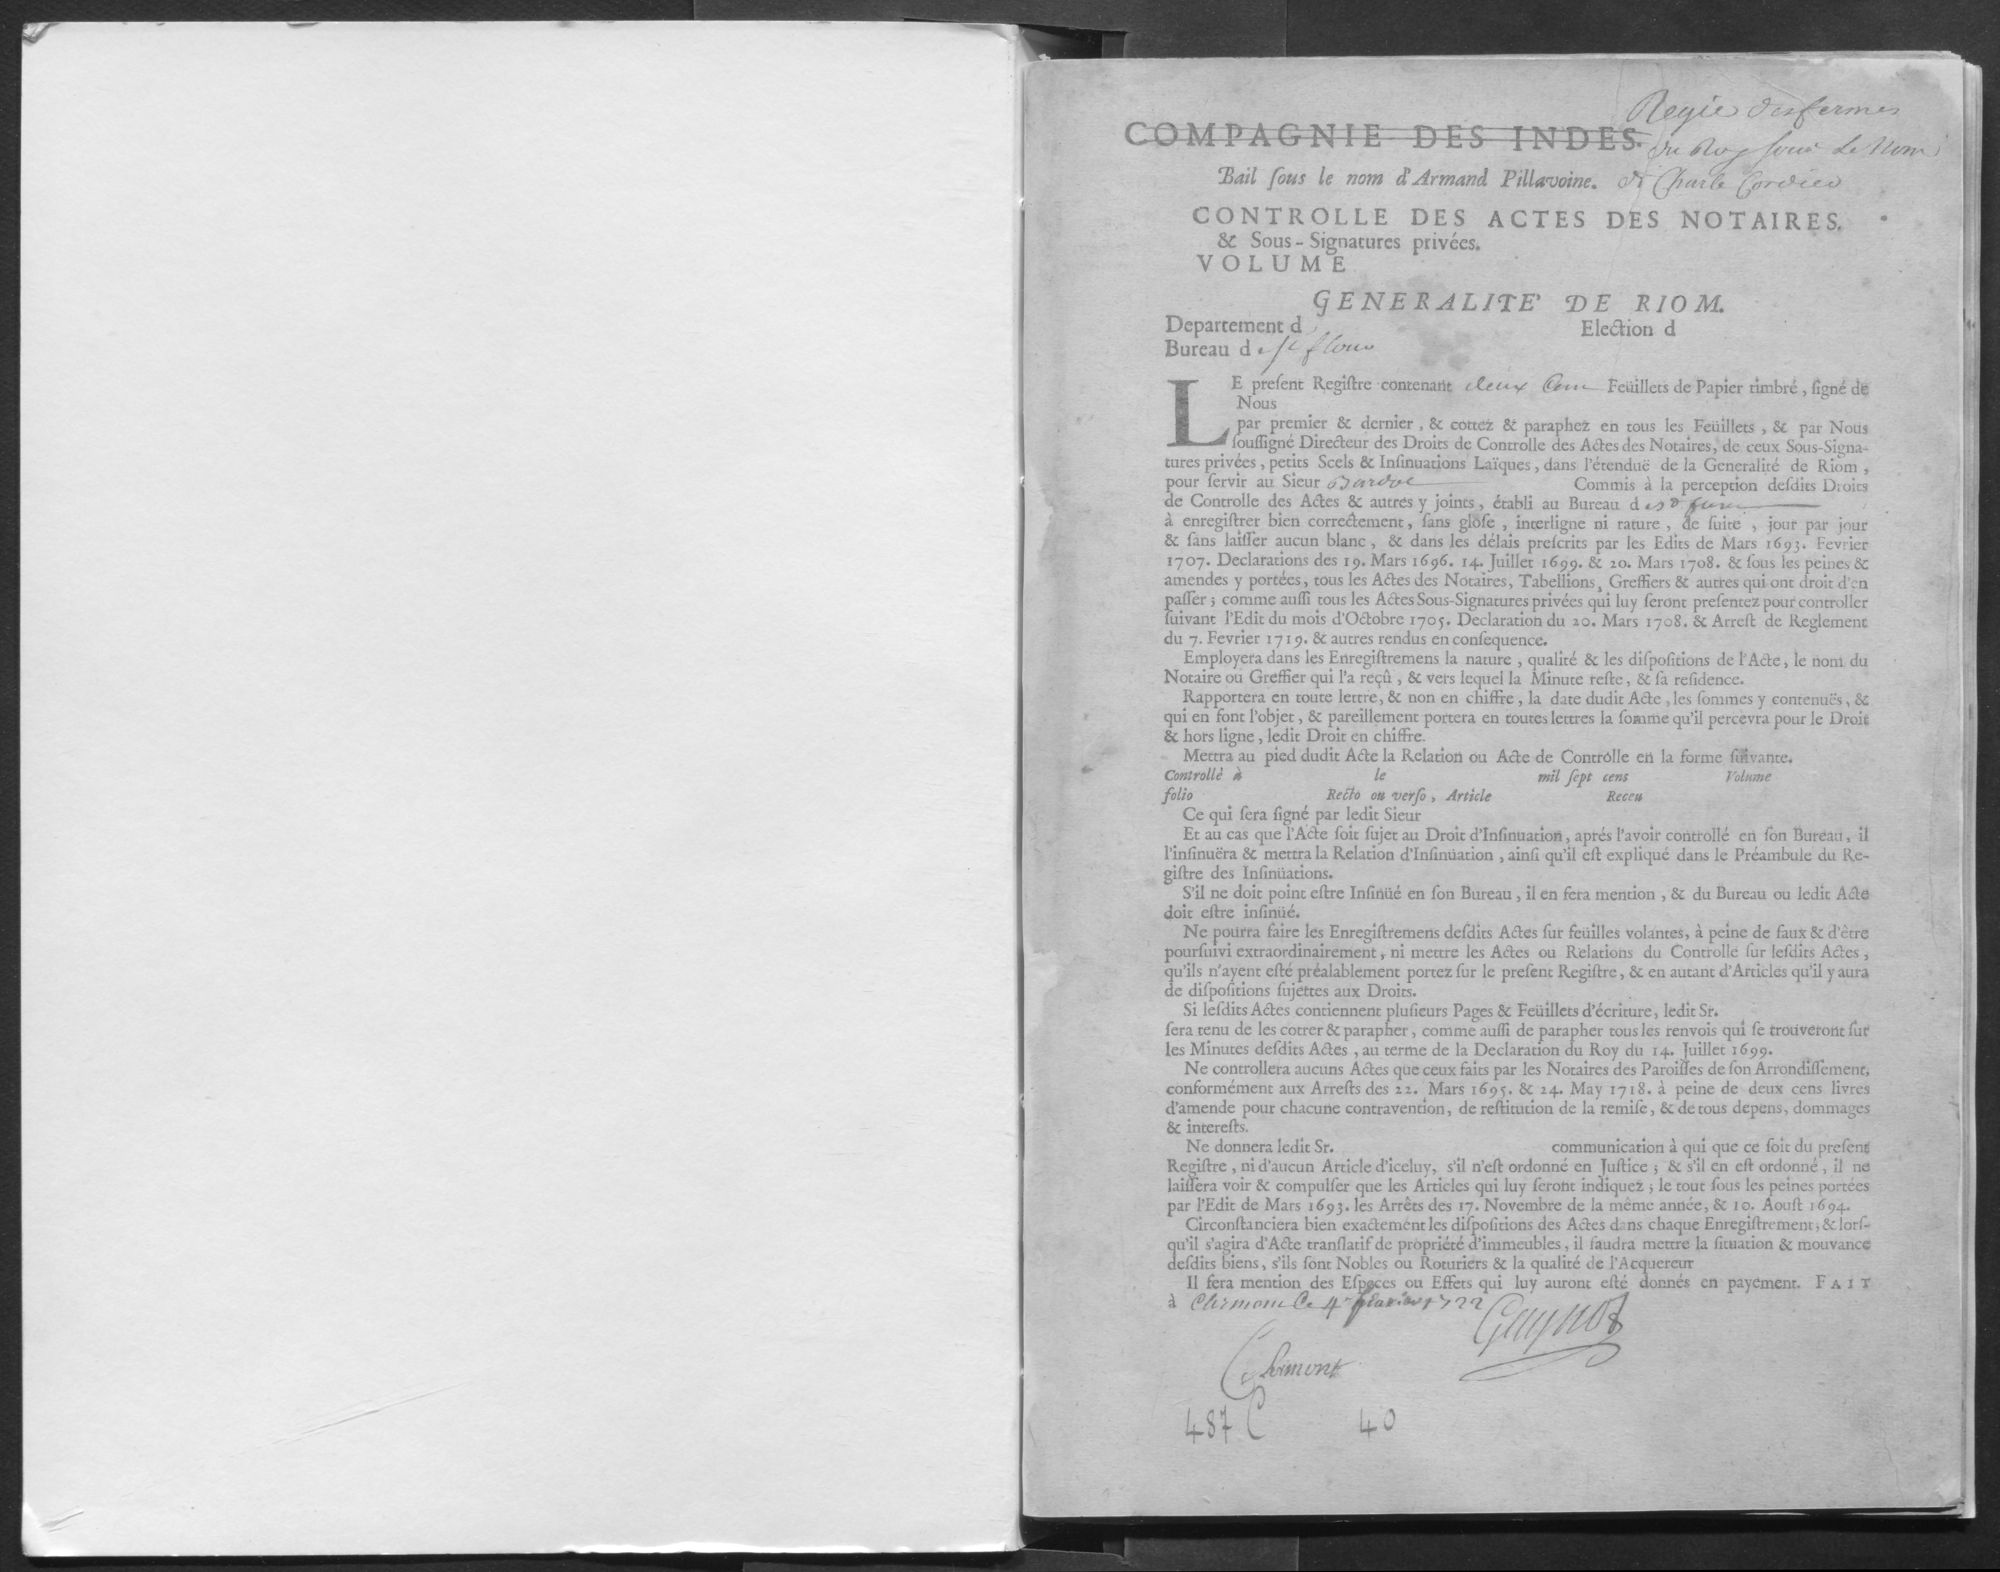 Regie des fermes
COMPAGNIE DES INDES.
du Roy sous Le Nom
Bail ſous le nom d'Armand Pillavoine. de Charle Cordier
CONTROLLE DES ACTES DES NOTAIRES.
& Sous-Signatures privées.
VOLUME
GENERALITE' DE RIOM.
Departement d Election d
Bureau d e St flour
LE preſent Regiſtre contenant deux Cent Feüillets de Papier timbré, ſigné de
Nous
par premier & dernier, & cottez & paraphez en tous les Feüillets, & par Nous
ſouſſigné Directeur des Droits de Controlle des Actes des Notaires, de ceux Sous-Signa-
tures privées, petits Scels & Inſinuations Laïques, dans l'étenduë de la Generalité de Riom,
pour ſervir au Sieur Commis à la perception deſdits Droits
de Controlle des Actes & autres y joints, établi au Bureau d
à enregiſtrer bien correctement, ſans gloſe, interligne ni rature, de ſuite, jour par jour
& ſans laiſſer aucun blanc, & dans les délais preſcrits par les Edits de Mars 1693. Fevrier
1707. Declarations des 19. Mars 1696. 14. Juillet 1699. & 20. Mars 1708. & ſous les peines &
amendes y portées, tous les Actes des Notaires, Tabellions, Greffiers & autres qui ont droit d'en
paſſer; comme auſſi tous les Actes Sous-Signatures privées qui luy ſeront preſentez pour controller
ſuivant l'Edit du mois d'Octobre 1705. Declaration du 20. Mars 1708. & Arreſt de Reglement
du 7. Fevrier 1719. & autres rendus en conſequence.
Employera dans les Enregiſtremens la nature, qualité & les diſpoſitions de l'Acte, le nom du
Notaire ou Greffier qui l'a reçû, & vers lequel la Minute reſte, & ſa reſidence.
Rapportera en toute lettre, & non en chiffre, la date dudit Acte, les ſommes y contenuës, &
qui en font l'objet, & pareillement portera en toutes lettres la ſomme qu'il percevra pour le Droit
& hors ligne, ledit Droit en chiffre.
Mettra au pied dudit Acte la Relation ou Acte de Contrôlle en la forme ſuivante.
Controllé à le mil ſept cens Volume
folio Recto ou verſo, Article Receu
Ce qui ſera ſigné par ledit Sieur
Et au cas que l'Acte ſoit ſujet au Droit d'Inſinuation, aprés l'avoir controllé en ſon Bureau, il
l'inſinuëra & mettra la Relation d'Inſinüation, ainſi qu'il eſt expliqué dans le Préambule du Re-
giſtre des Inſinüations.
S'il ne doit point eſtre Inſinüé en ſon Bureau, il en fera mention, & du Bureau ou ledit Acte
doit eſtre inſinüé.
Ne pourra faire les Enregiſtremens deſdits Actes ſur feüilles volantes, à peine de faux & d'être
pourſuivi extraordinairement, ni mettre les Actes ou Relations du Controlle ſur leſdits Actes,
qu'ils n'ayent eſté préalablement portez ſur le preſent Regiſtre, & en autant d'Articles qu'il y aura
de diſpoſitions ſujettes aux Droits.
Si leſdits Actes contiennent pluſieurs Pages & Feüillets d'écriture, ledit Sr.
ſera tenu de les cotter & parapher, comme auſſi de parapher tous les renvois qui ſe trouveront ſur
les Minutes deſdits Actes, au terme de la Declaration du Roy du 14. Juillet 1699.
Ne controllera aucuns Actes que ceux faits par les Notaires des Paroiſſes de ſon Arrondiſſement,
conformément aux Arreſts des 22. Mars 1695. & 24. May 1718. à peine de deux cens livres
d'amende pour chacune contravention, de reſtitution de la remiſe, & de tous depens, dommages
& intereſts.
Ne donnera ledit Sr. communication à qui que ce ſoit du preſent
Regiſtre, ni d'aucun Article d'iceluy, s'il n'eſt ordonné en Juſtice; & s'il en eſt ordonné, il ne
laiſſera voir & compulſer que les Articles qui luy ſeront indiquez; le tout ſous les peines portées
par l'Edit de Mars 1693. les Arrêts des 17. Novembre de la même année, & 10. Aouſt 1694.
Circonſtanciera bien exactement les diſpoſitions des Actes dans chaque Enregiſtrement; & lorſ-
qu'il s'agira d'Acte tranſlatif de propriété d'immeubles, il faudra mettre la ſituation & mouvance
deſdits biens, s'ils ſont Nobles ou Roturiers & la qualité de l'Acquereur
Il ſera mention des Eſpeces ou Effets qui luy auront eſté donnés en payement. FAIT
à Clermont Ce 4 1722
Clermont
487 C 40